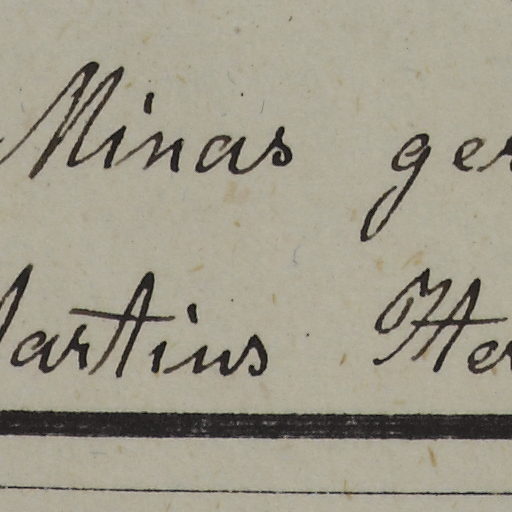 Minas ger
artius Her